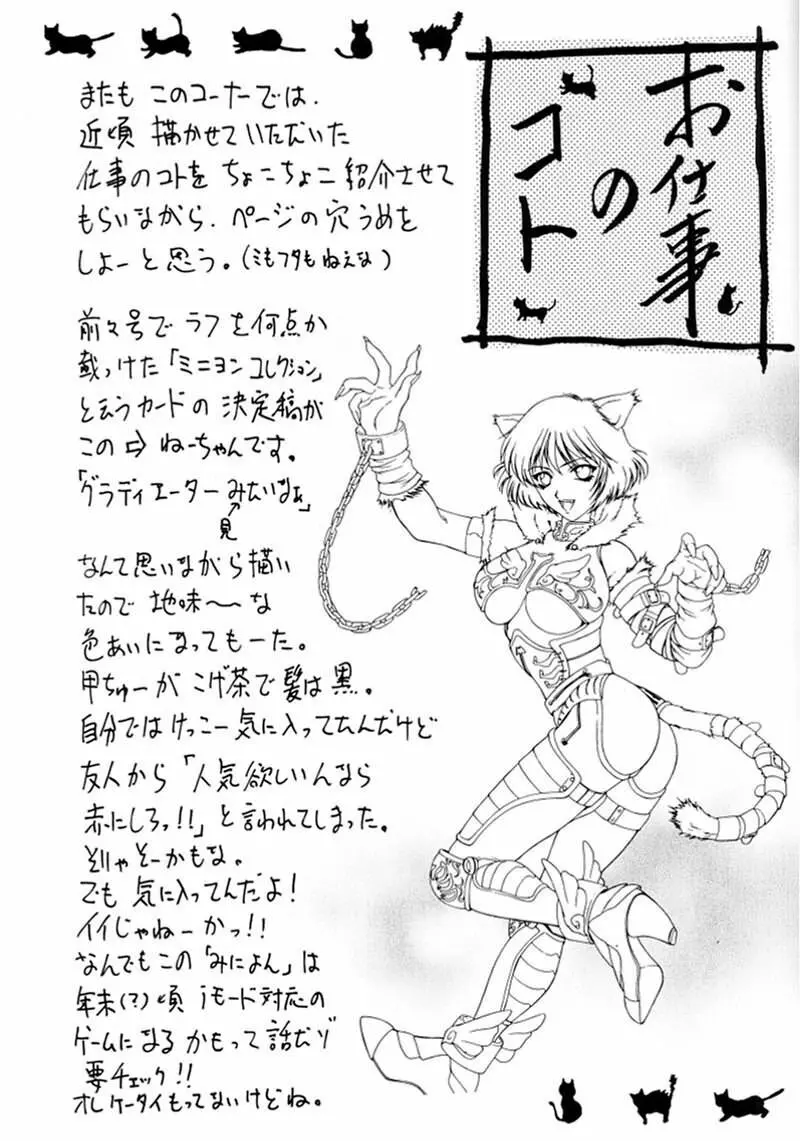 お仕事
の
コト
またも このコーナーでは、
近頃 描かせていただいた
仕事のコトを ちょこちょこ紹介させて
もらいながら、ページの穴うめを
しよーと思う。(ミもフタもねえな)
前々号で ラフを何点か
載っけた「ミニヨンコレクション」
と云うカードの 決定稿が
この⇨ ねーちゃんです。
「グラディエーターみたいなぁ」
見
なんて思いながら描い
たので 地味〜〜な
色あいになってもーた。
甲ちゅーが こげ茶で髪は黒。
自分では けっこー気に入ってたんだけど
友人から「人気欲しいんなら
赤にしろっ!!」と言われてしまった。
そりゃそーかもな。
でも 気に入ってんだよ!
イイじゃねーかっ!!
なんでもこの「みによん」は
年末(?)頃 iモード対応の
ゲームになるかもって話だゾ
要チェック!!
オレケータイもってないけどね。